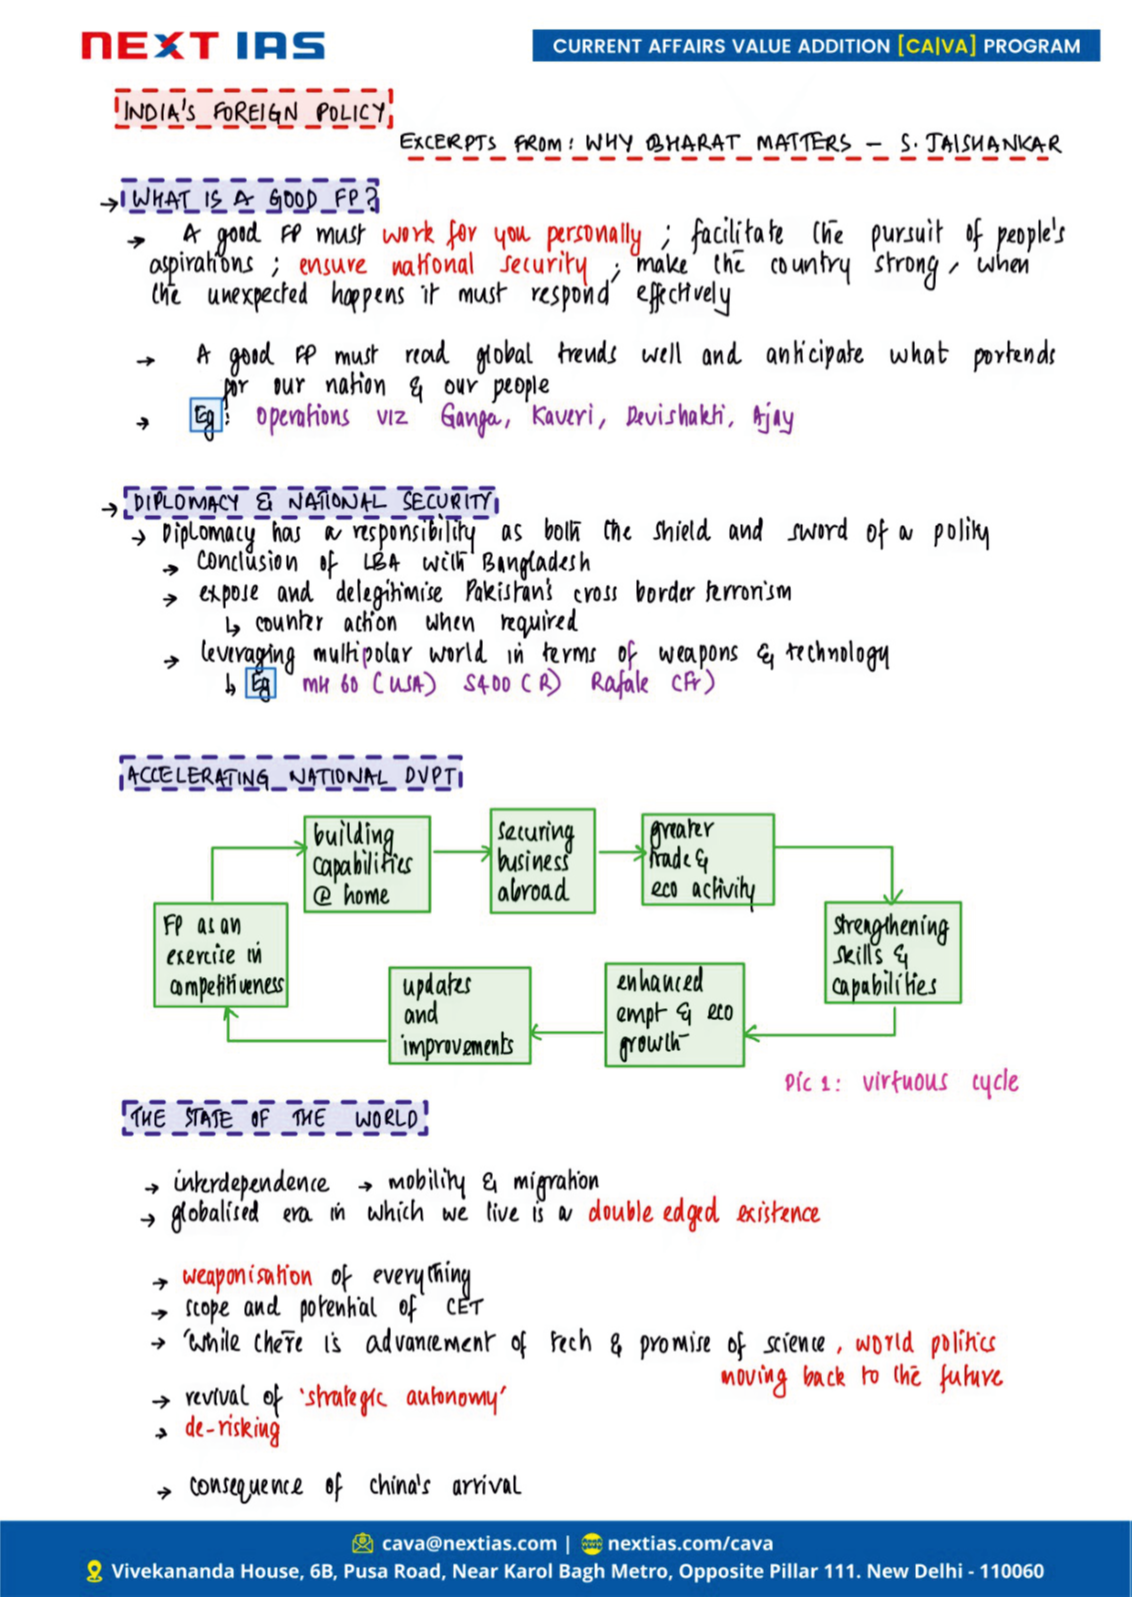 NEXT IAS
CURRENT AFFAIRS VALUE ADDITION [CA|VA] PROGRAM
INDIA'S FOREIGN POLICY
EXCERPTS FROM: WHY BHARAT MATTERS – S. JAISHANKAR
→ WHAT IS A GOOD FP?
→ A good FP must work for you personally ; facilitate the pursuit of people's
aspirations ; ensure national security ; make the country strong, when
the unexpected happens it must respond effectively
→ A good FP must read global trends well and anticipate what portends
for our nation & our people
→ Eg: operations viz Ganga, Kaveri, Devishakti, Ajay
→ DIPLOMACY & NATIONAL SECURITY
→ Diplomacy has a responsibility as both the shield and sword of a polity
→ Conclusion of LBA with Bangladesh
→ expose and delegitimise Pakistan's cross border terrorism
↳ counter action when required
→ leveraging multipolar world in terms of weapons & technology
↳ Eg MH 60 (USA) S400 (R) Rafale (Fr)
ACCELERATING NATIONAL DVPT
building
capabilities
@ home
securing
business
abroad
greater
trade &
eco activity
strengthening
skills &
capabilities
enhanced
empt & eco
growth
updates
and
improvements
FP as an
exercise in
competitiveness
Pic 1: virtuous cycle
THE STATE OF THE WORLD
→ interdependence → mobility & migration
→ globalised era in which we live is a double edged existence
→ weaponisation of everything
→ scope and potential of CET
→ 'while there is advancement of tech & promise of science, world politics
moving back to the future
→ revival of 'strategic autonomy'
→ de-risking
→ consequence of china's arrival
cava@nextias.com | nextias.com/cava
Vivekananda House, 6B, Pusa Road, Near Karol Bagh Metro, Opposite Pillar 111. New Delhi - 110060